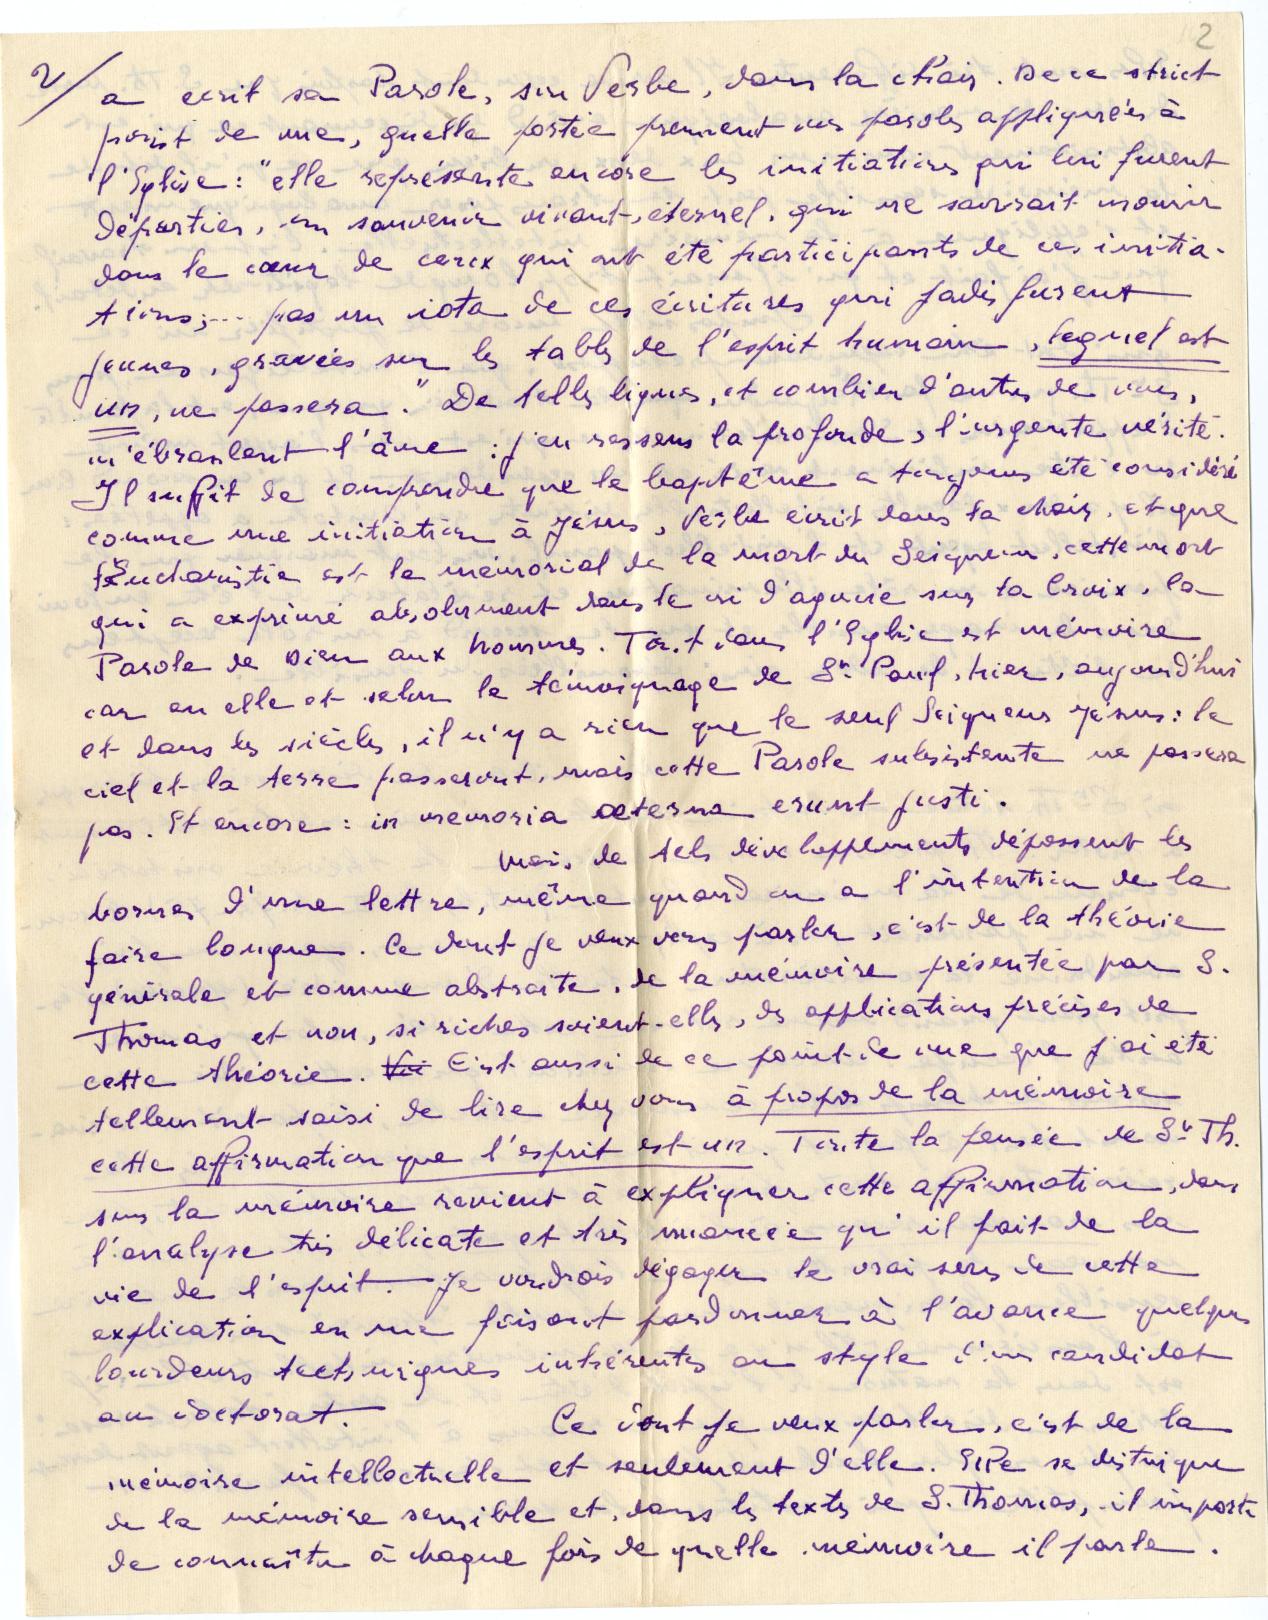 2
2/
a écrit sa Parole, son Verbe, dans la chair. De ce strict
point de vue, quelle portée prennent vos paroles appliquées à
l'Eglise : "elle représente encore les initiations qui lui furent
départies, un souvenir vivant, éternel, qui ne saurait mourir
dans le cœur de ceux qui ont été participants de ces initia-
tions;... pas un iota de ces écritures qui jadis furent
jeunes, gravées sur les tables de l'esprit humain, lequel est
un, ne passera." De telles lignes, et combien d'autres de vous,
m'ébranlent l'âme : j'en ressens la profonde, l'urgente vérité.
Il suffit de comprendre que le baptême a toujours été considéré
comme une initiation à Jésus, Verbe écrit dans la chair, et que
l'Eucharistie est le mémorial de la mort du Seigneur, cette mort
qui a exprimé absolument dans le cri d'agonie sur la Croix, la
Parole de Dieu aux hommes. Tout dans l'Eglise est mémoire
car en elle et selon le témoignage de St Paul, hier, aujourd'hui
et dans les siècles, il n'y a rien que le seul Seigneur Jésus : le
ciel et la terre passeront, mais cette Parole subsistente ne passera
pas. Et encore : in memoria aeterna erunt justi.
Mais de tels développements dépassent les
bornes d'une lettre, même quand on a l'intention de la
faire longue. Ce dont je veux vous parler, c'est de la théorie
générale et comme abstraite, de la mémoire présentée par S.
Thomas et non, si riches soient-elles, des applications précises de
cette théorie. C'est aussi de ce point de vue que j'ai été
tellement saisi de lire chez vous à propos de la mémoire
cette affirmation que l'esprit est un. Toute la pensée de St Th.
sur la mémoire revient à expliquer cette affirmation, dans
l'analyse très délicate et très nuancée qu'il fait de la
vie de l'esprit. Je voudrais dégager le vrai sens de cette
explication en me faisant pardonner à l'avance quelques
lourdeurs techniques inhérentes au style d'un candidat
au doctorat.
Ce dont je veux parler, c'est de la
mémoire intellectuelle et seulement d'elle. Elle se distingue
de la mémoire sensible et, dans les textes de S. Thomas, il importe
de connaître à chaque fois de quelle mémoire il parle.